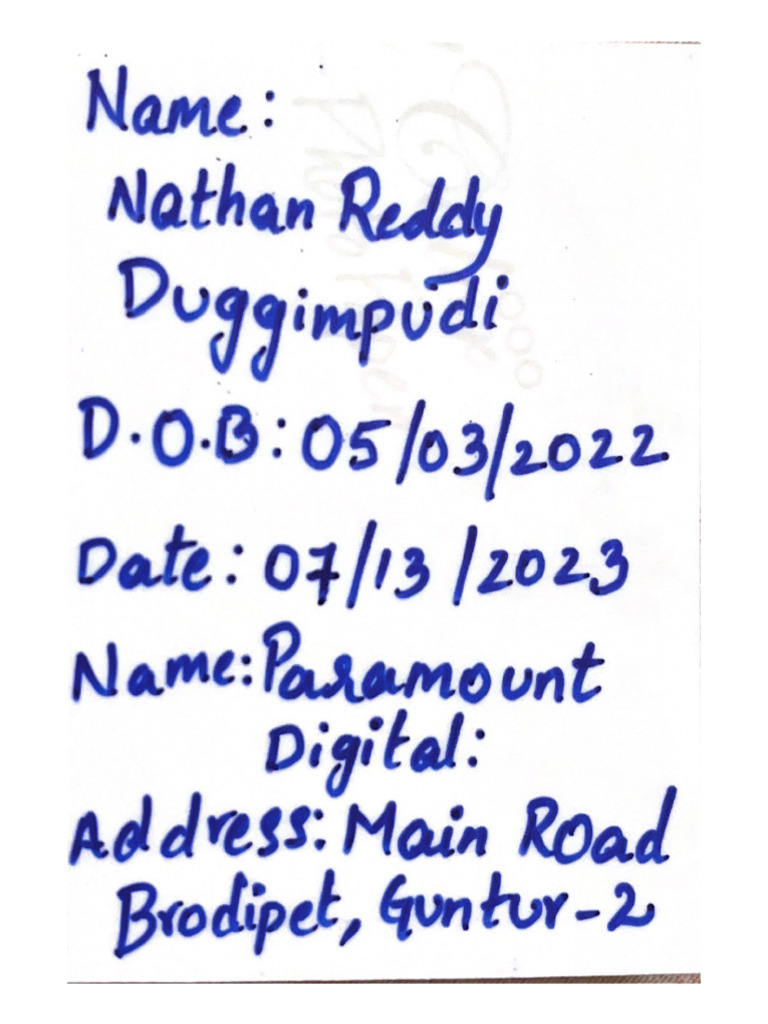 Name:
Nathan Reddy
Duggimpudi
D.O.B: 05/03/2022
Date: 07/13/2023
Name: Paramount
Digital:
Address: Main Road
Brodipet, Guntur-2